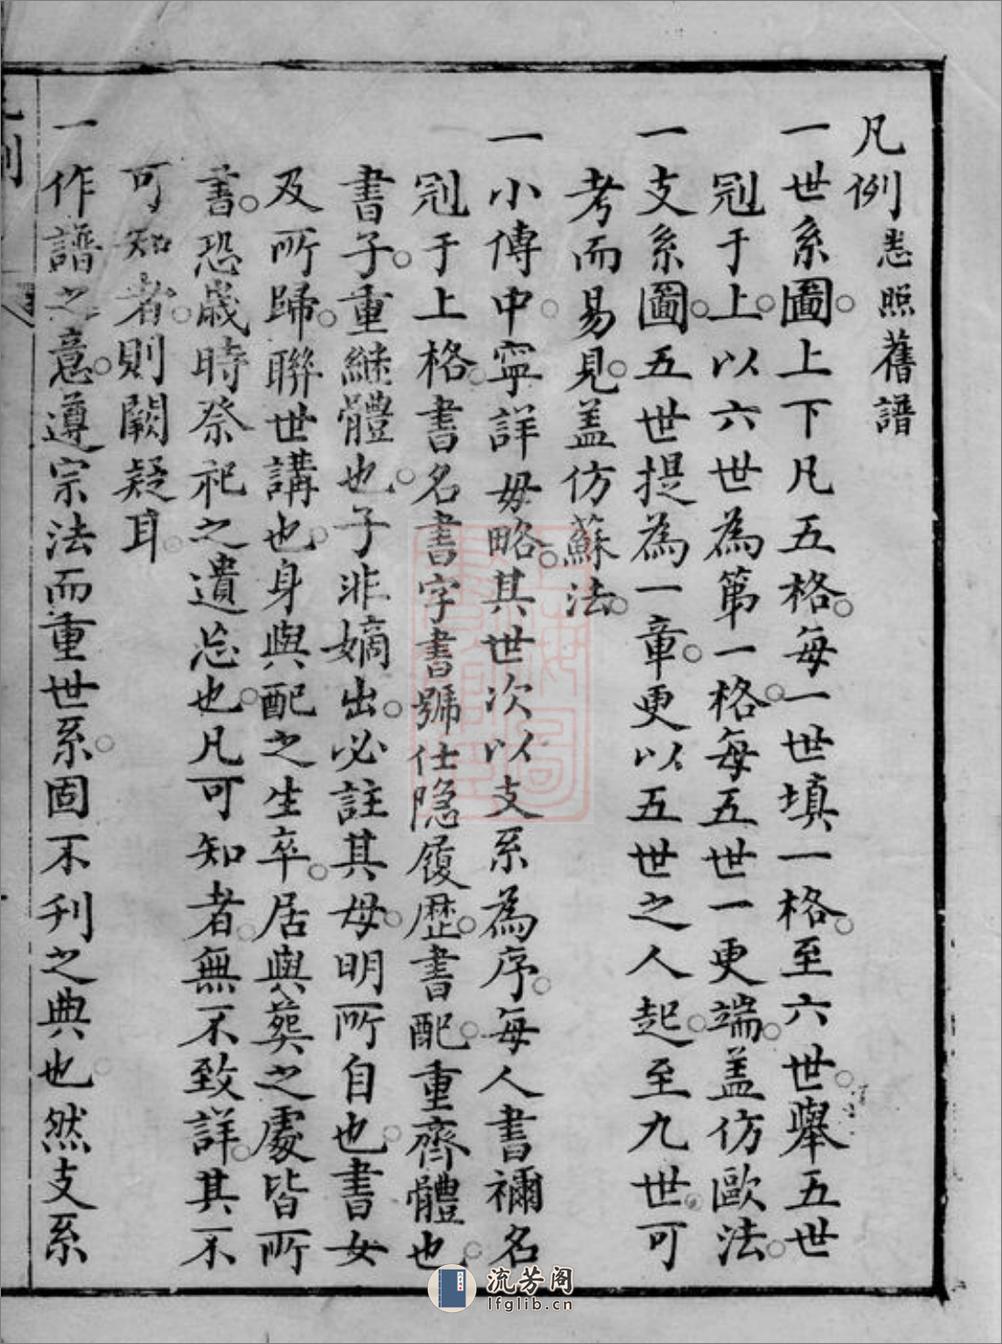 凡例悉照舊譜
一世系圖上下凡五格每一世填一格至六世舉五世
冠于上以六世為第一格每五世一更端盖仿歐法
一支系圖五世提為一章更以五世之人起至九世可
考而易見盖仿蘇法
一小傳中寧詳毋略其世次以支系為序每人書禰名
冠于上格書名書字書號仕隐履歴書配重齊體也
書子重継體也子非嫡出必註其母明所自也書女
及所歸聯世講也身與配之生卒居與葬之處皆所
書恐歲時祭祀之遺忘也凡可知者無不致詳其不
可知者則闕疑耳
一作譜之意遵宗法而重世系固不刋之典也然支系
流芳阁
lfglib.cn